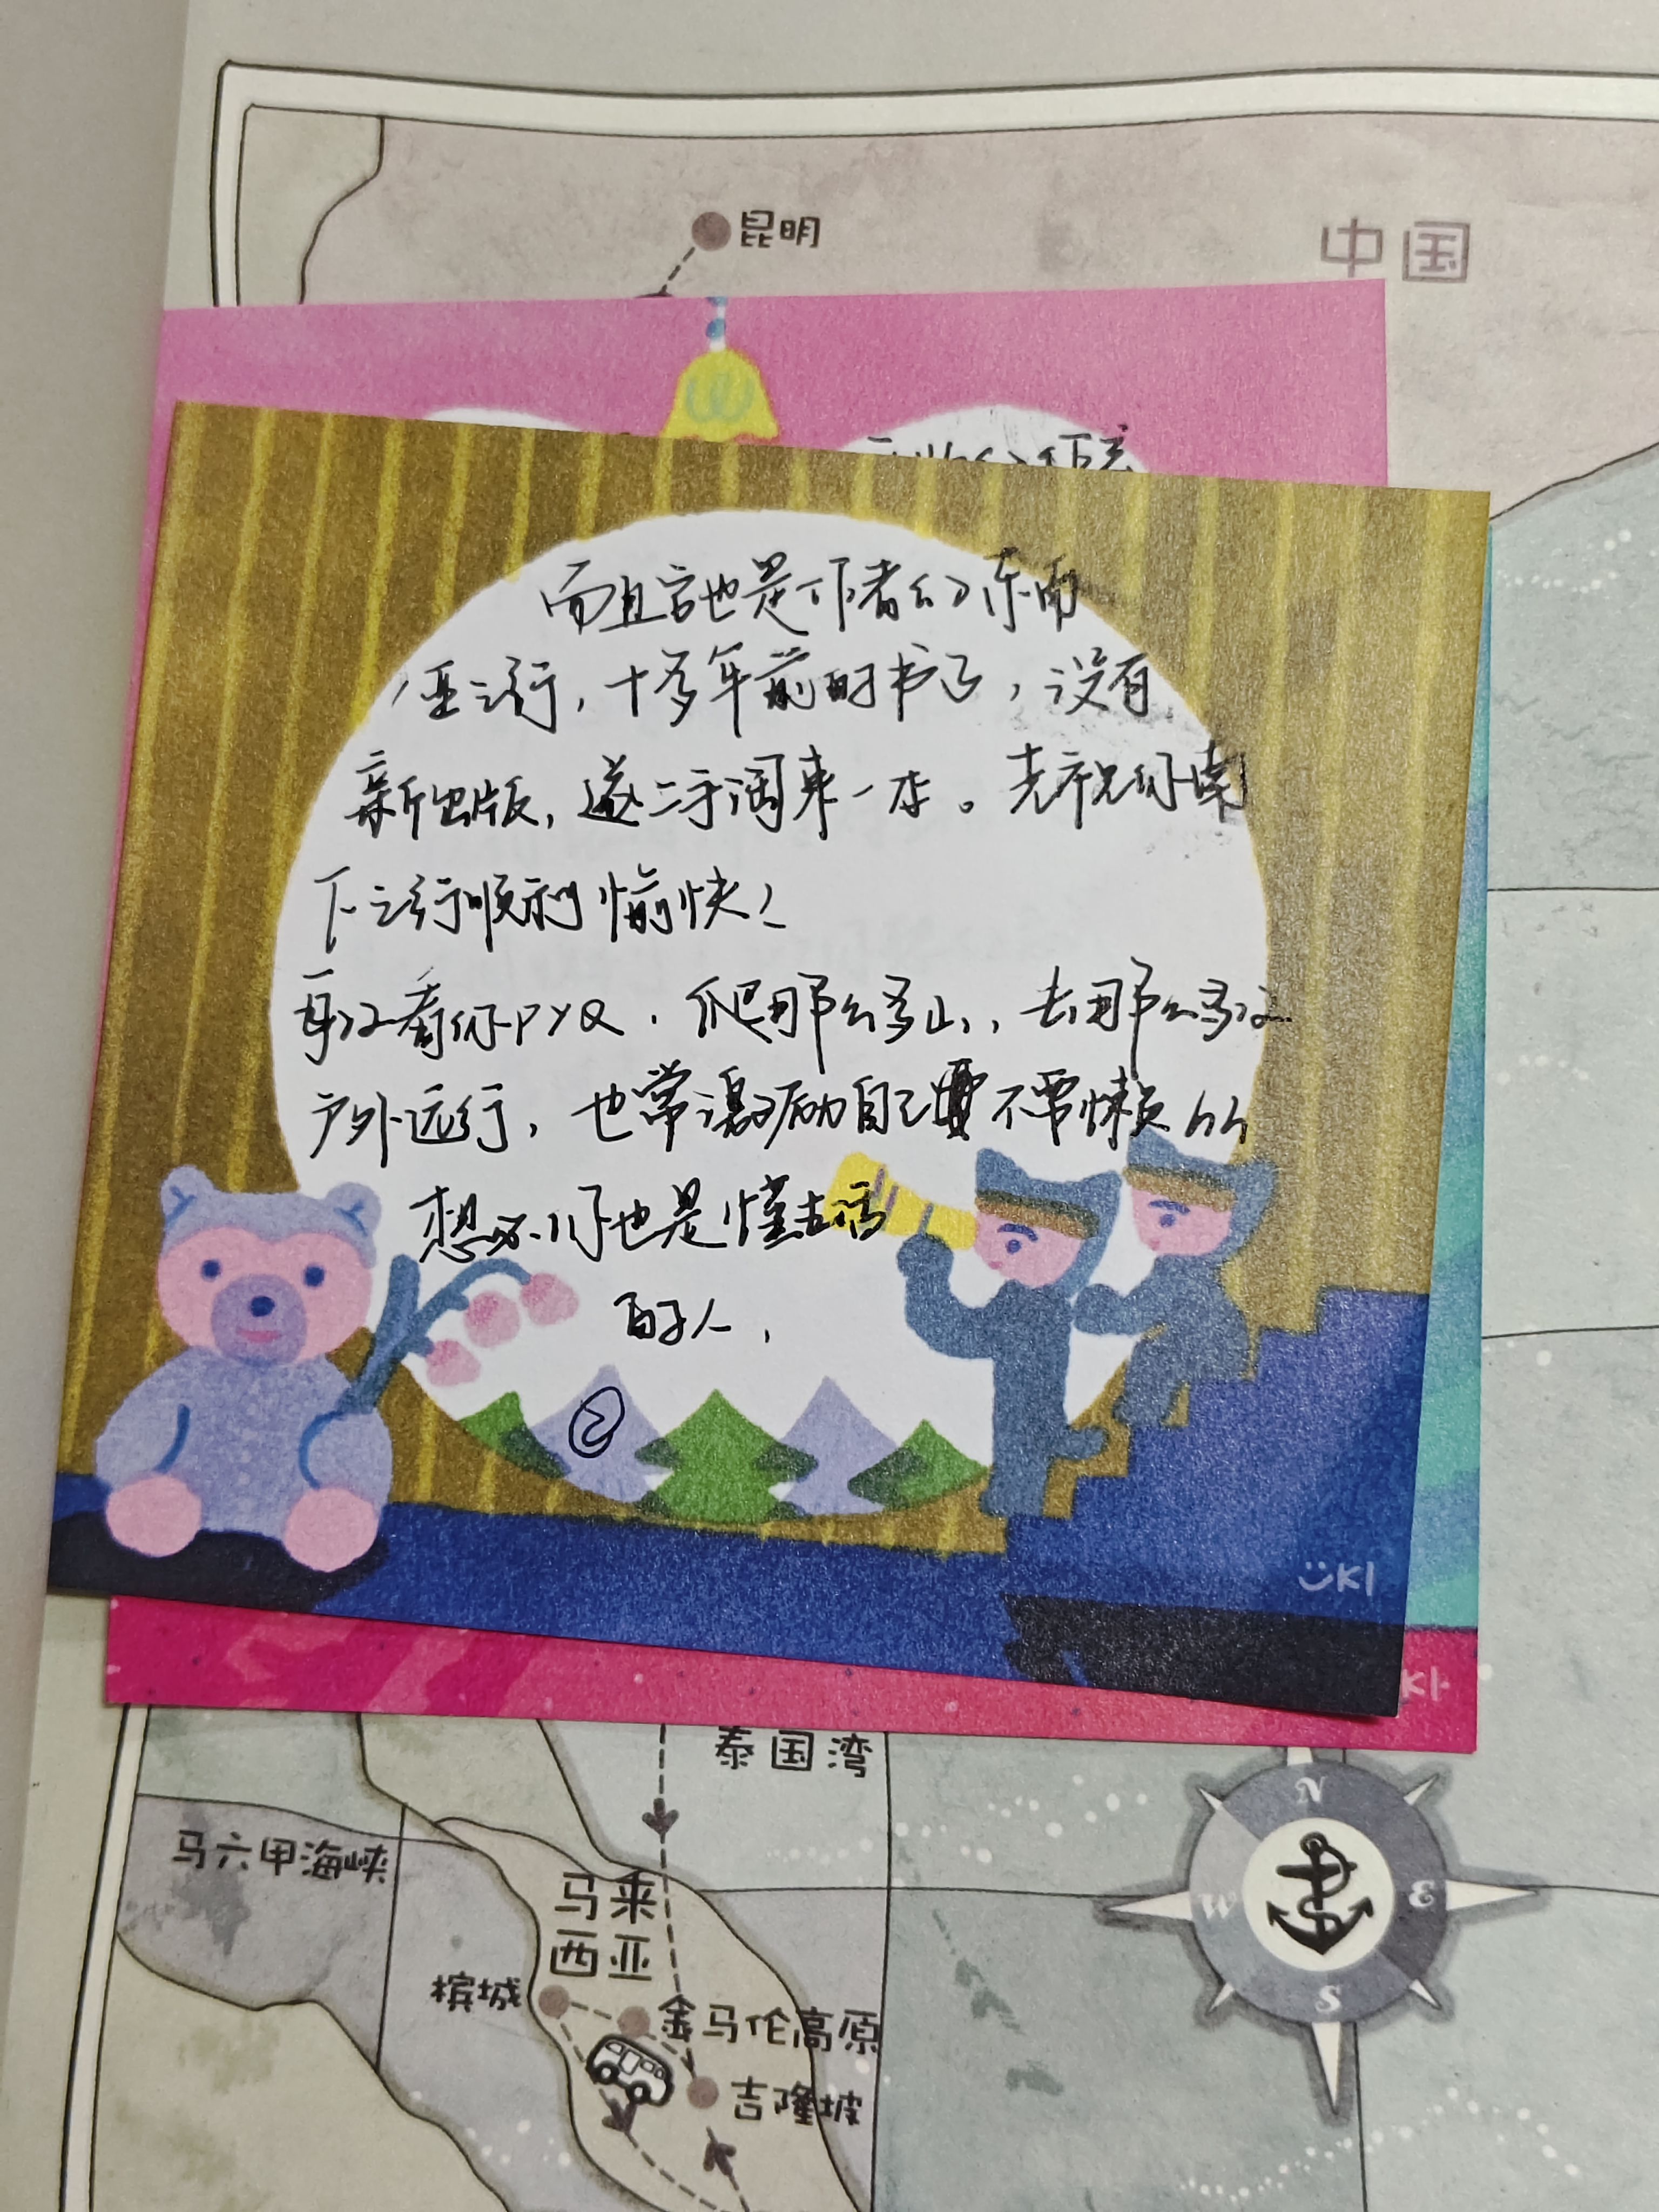 昆明
中国
而且它也是作者的东南
亚之行，十多年前的书了，没有
新出版，遂二手淘来一本。先祝你南
下之行顺利愉快！
每次看你PYQ，爬那么多山，去那么多次
户外远行，也常激励自己要不要懒
想必你也是懂生活
的人，
②
UKI
KI
泰国湾
马六甲海峡
马来
西亚
槟城
金马伦高原
吉隆坡
N
W
E
S